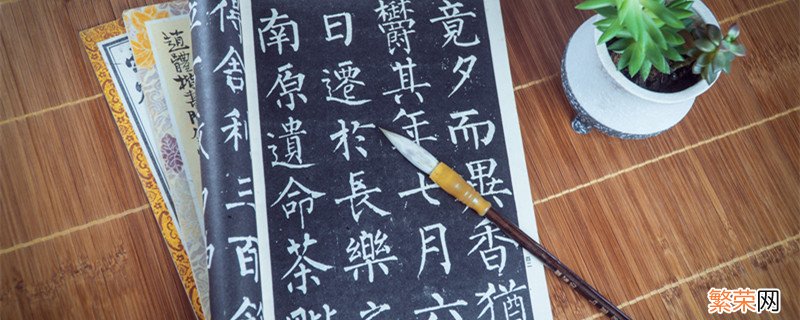 竟夕而異香猶
鬱其年七月六
日遷於長樂之
南原遺命茶
得舍利三百
繁荣网